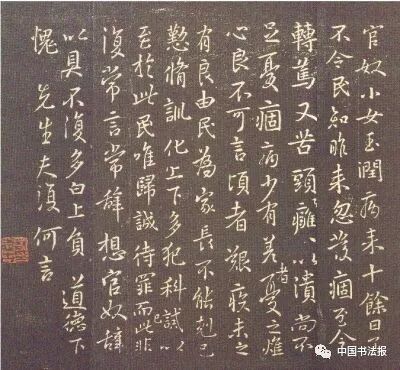 官奴小女玉潤病来十餘日了
不令民知昨来忽發痼至今
轉篤又苦頭癰〻以潰尚不
足憂痼病少有差者憂之燋
心良不可言頃者艱疾未之
有良由民為家長不能尅己
懃脩訓化上下多犯科誡以
至於此民唯歸誠待罪而已此非
復常言常辭想官奴辭
以具不復多白上負 道德下
愧 先生夫復何言
中国书法报